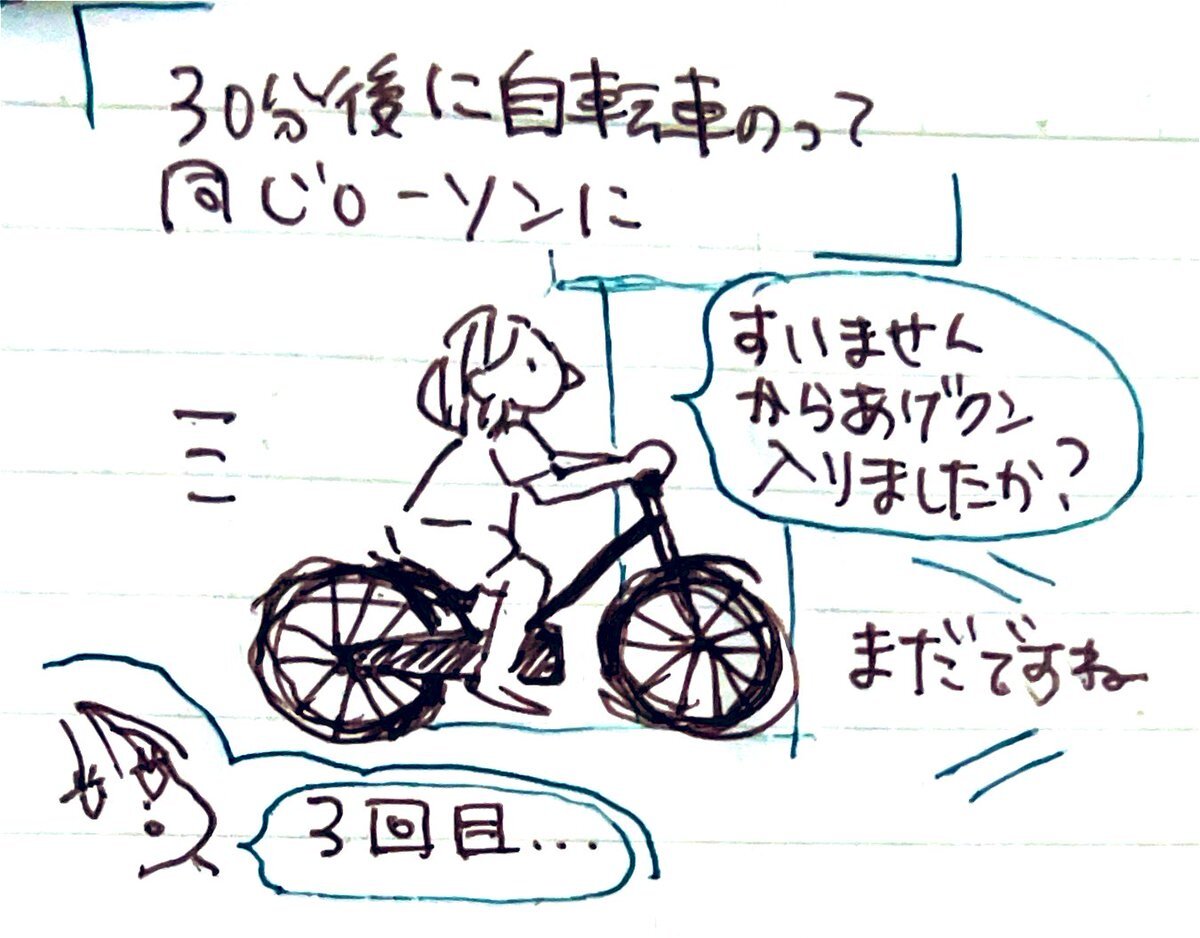 30分後に自転車のって
同じローソンに
すいません
からあげクン
入りましたか?
まだですね
3回目...